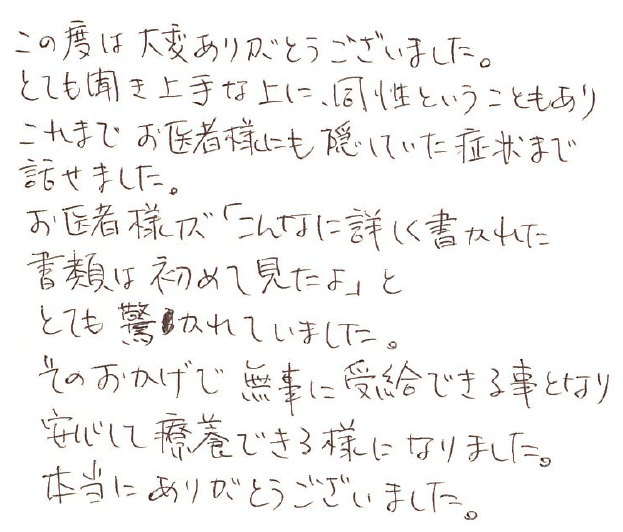 この度は大変ありがとうございました。
とても聞き上手な上に、同性ということもあり
これまでお医者様にも隠していた症状まで
話せました。
お医者様が「こんなに詳しく書かれた
書類は初めて見たよ」と
とても驚かれていました。
そのおかげで無事に受給できる事となり
安心して療養できる様になりました。
本当にありがとうございました。